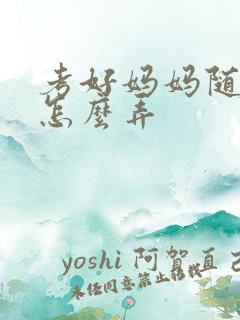 考好妈妈随
怎麽弄
yoshi 阿贺直己
未经同意禁止转载